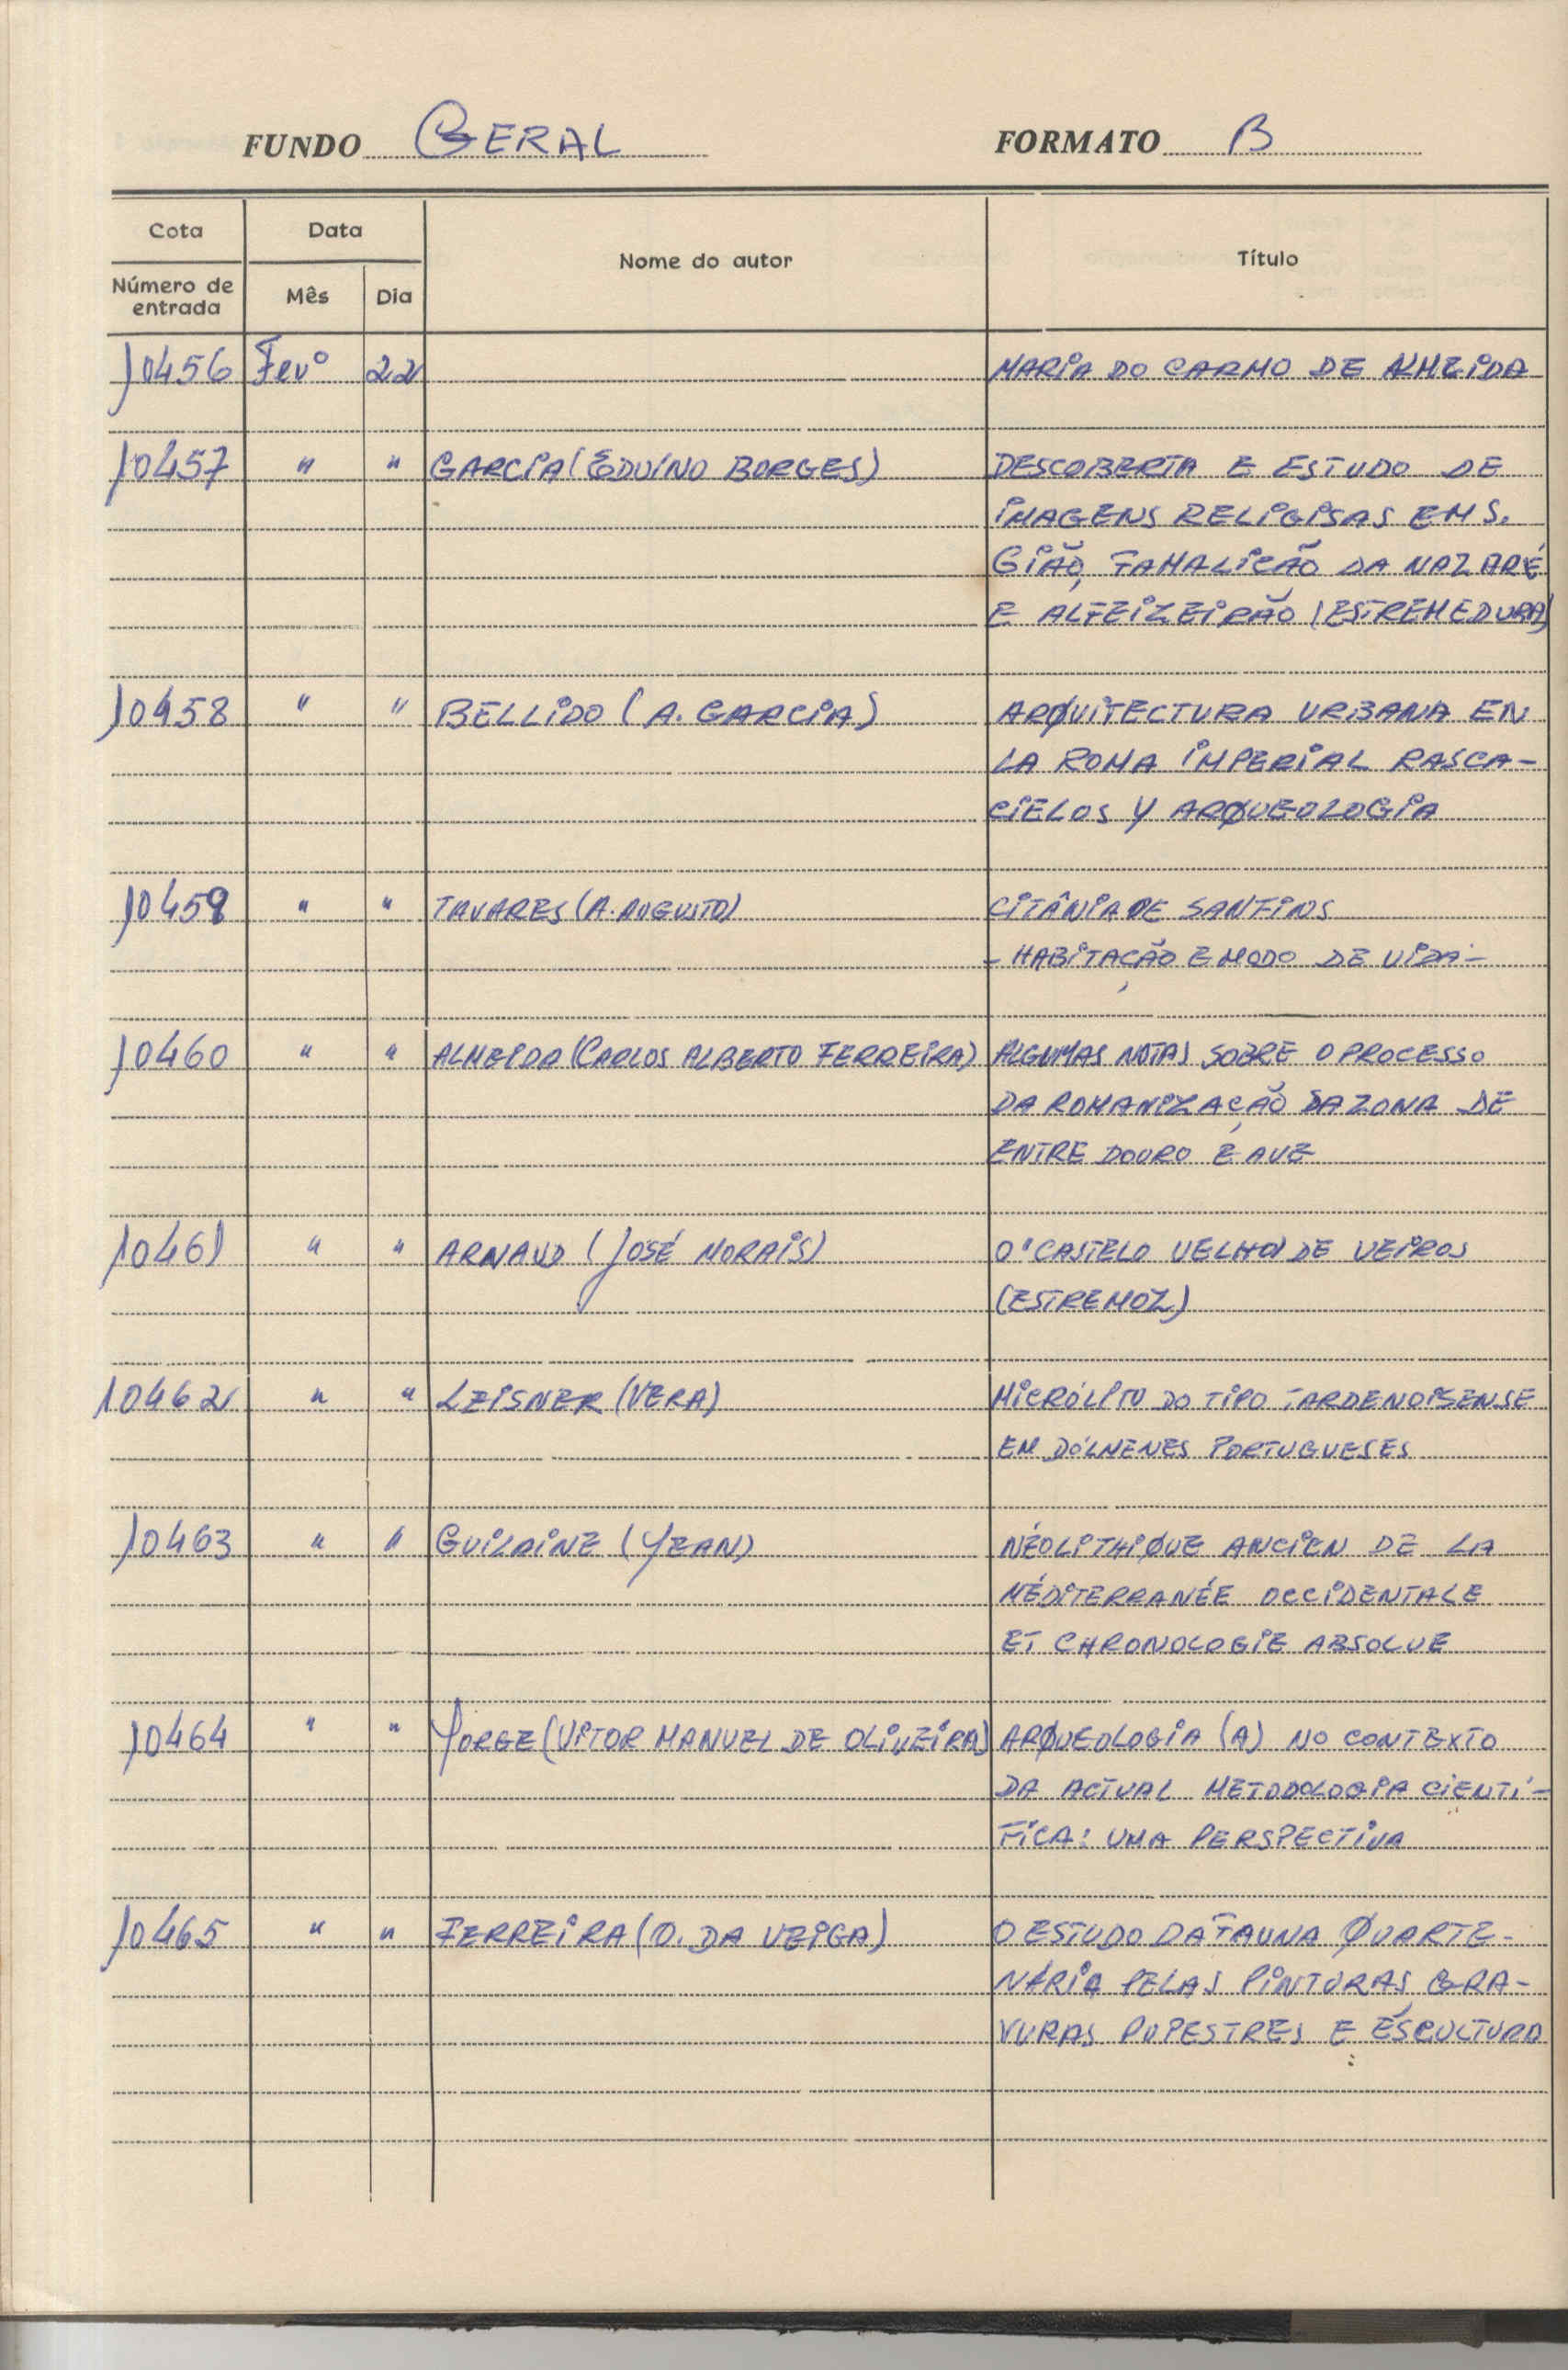 FUNDO GERAL FORMATO B
Cota Data Nome do autor Título
Número de entrada Mês Dia
10456 Fevº 22 MARIA DO CARMO DE ALMEIDA
10457 " " GARCIA (EDUÍNO BORGES) DESCOBERTA E ESTUDO DE
IMAGENS RELIGISAS EM S.
GIÃO, FAMALICÃO DA NAZARÉ
E ALFEIZEIRÃO (ESTREMEDURA)
10458 " " BELLIDO (A. GARCIA) ARQUITECTURA URBANA EN
LA ROMA IMPERIAL RASCA-
CIELOS Y ARQUEOLOGIA
10459 " " TAVARES (A. AUGUSTO) CITÂNIA DE SANFINS
- HABITAÇÃO E MODO DE VIDA -
10460 " " ALMEIDA (CARLOS ALBERTO FERREIRA) ALGUMAS NOTAS SOBRE O PROCESSO
DA ROMANIZAÇÃO DA ZONA DE
ENTRE DOURO E AVE
10461 " " ARNAUD (JOSÉ MORAIS) O "CASTELO VELHO" DE VEIROS
(ESTREMOZ)
10462 " " LEISNER (VERA) MICRÓLITO DO TIPO TARDENOISENSE
EM DÓLMENES PORTUGUESES
10463 " " GUILAINE (JEAN) NÉOLITHIQUE ANCIEN DE LA
MÉDITERRANÉE OCCIDENTALE
ET CHRONOLOGIE ABSOLUE
10464 " " JORGE (VITOR MANUEL DE OLIVEIRA) ARQUEOLOGIA (A) NO CONTEXTO
DA ACTUAL METODOLOGIA CIENTÍ-
FICA: UMA PERSPECTIVA
10465 " " FERREIRA (O. DA VEIGA) O ESTUDO DA FAUNA QUARTE-
NÁRIA PELAS PINTURAS, GRA-
VURAS RUPESTRES E ESCULTURA